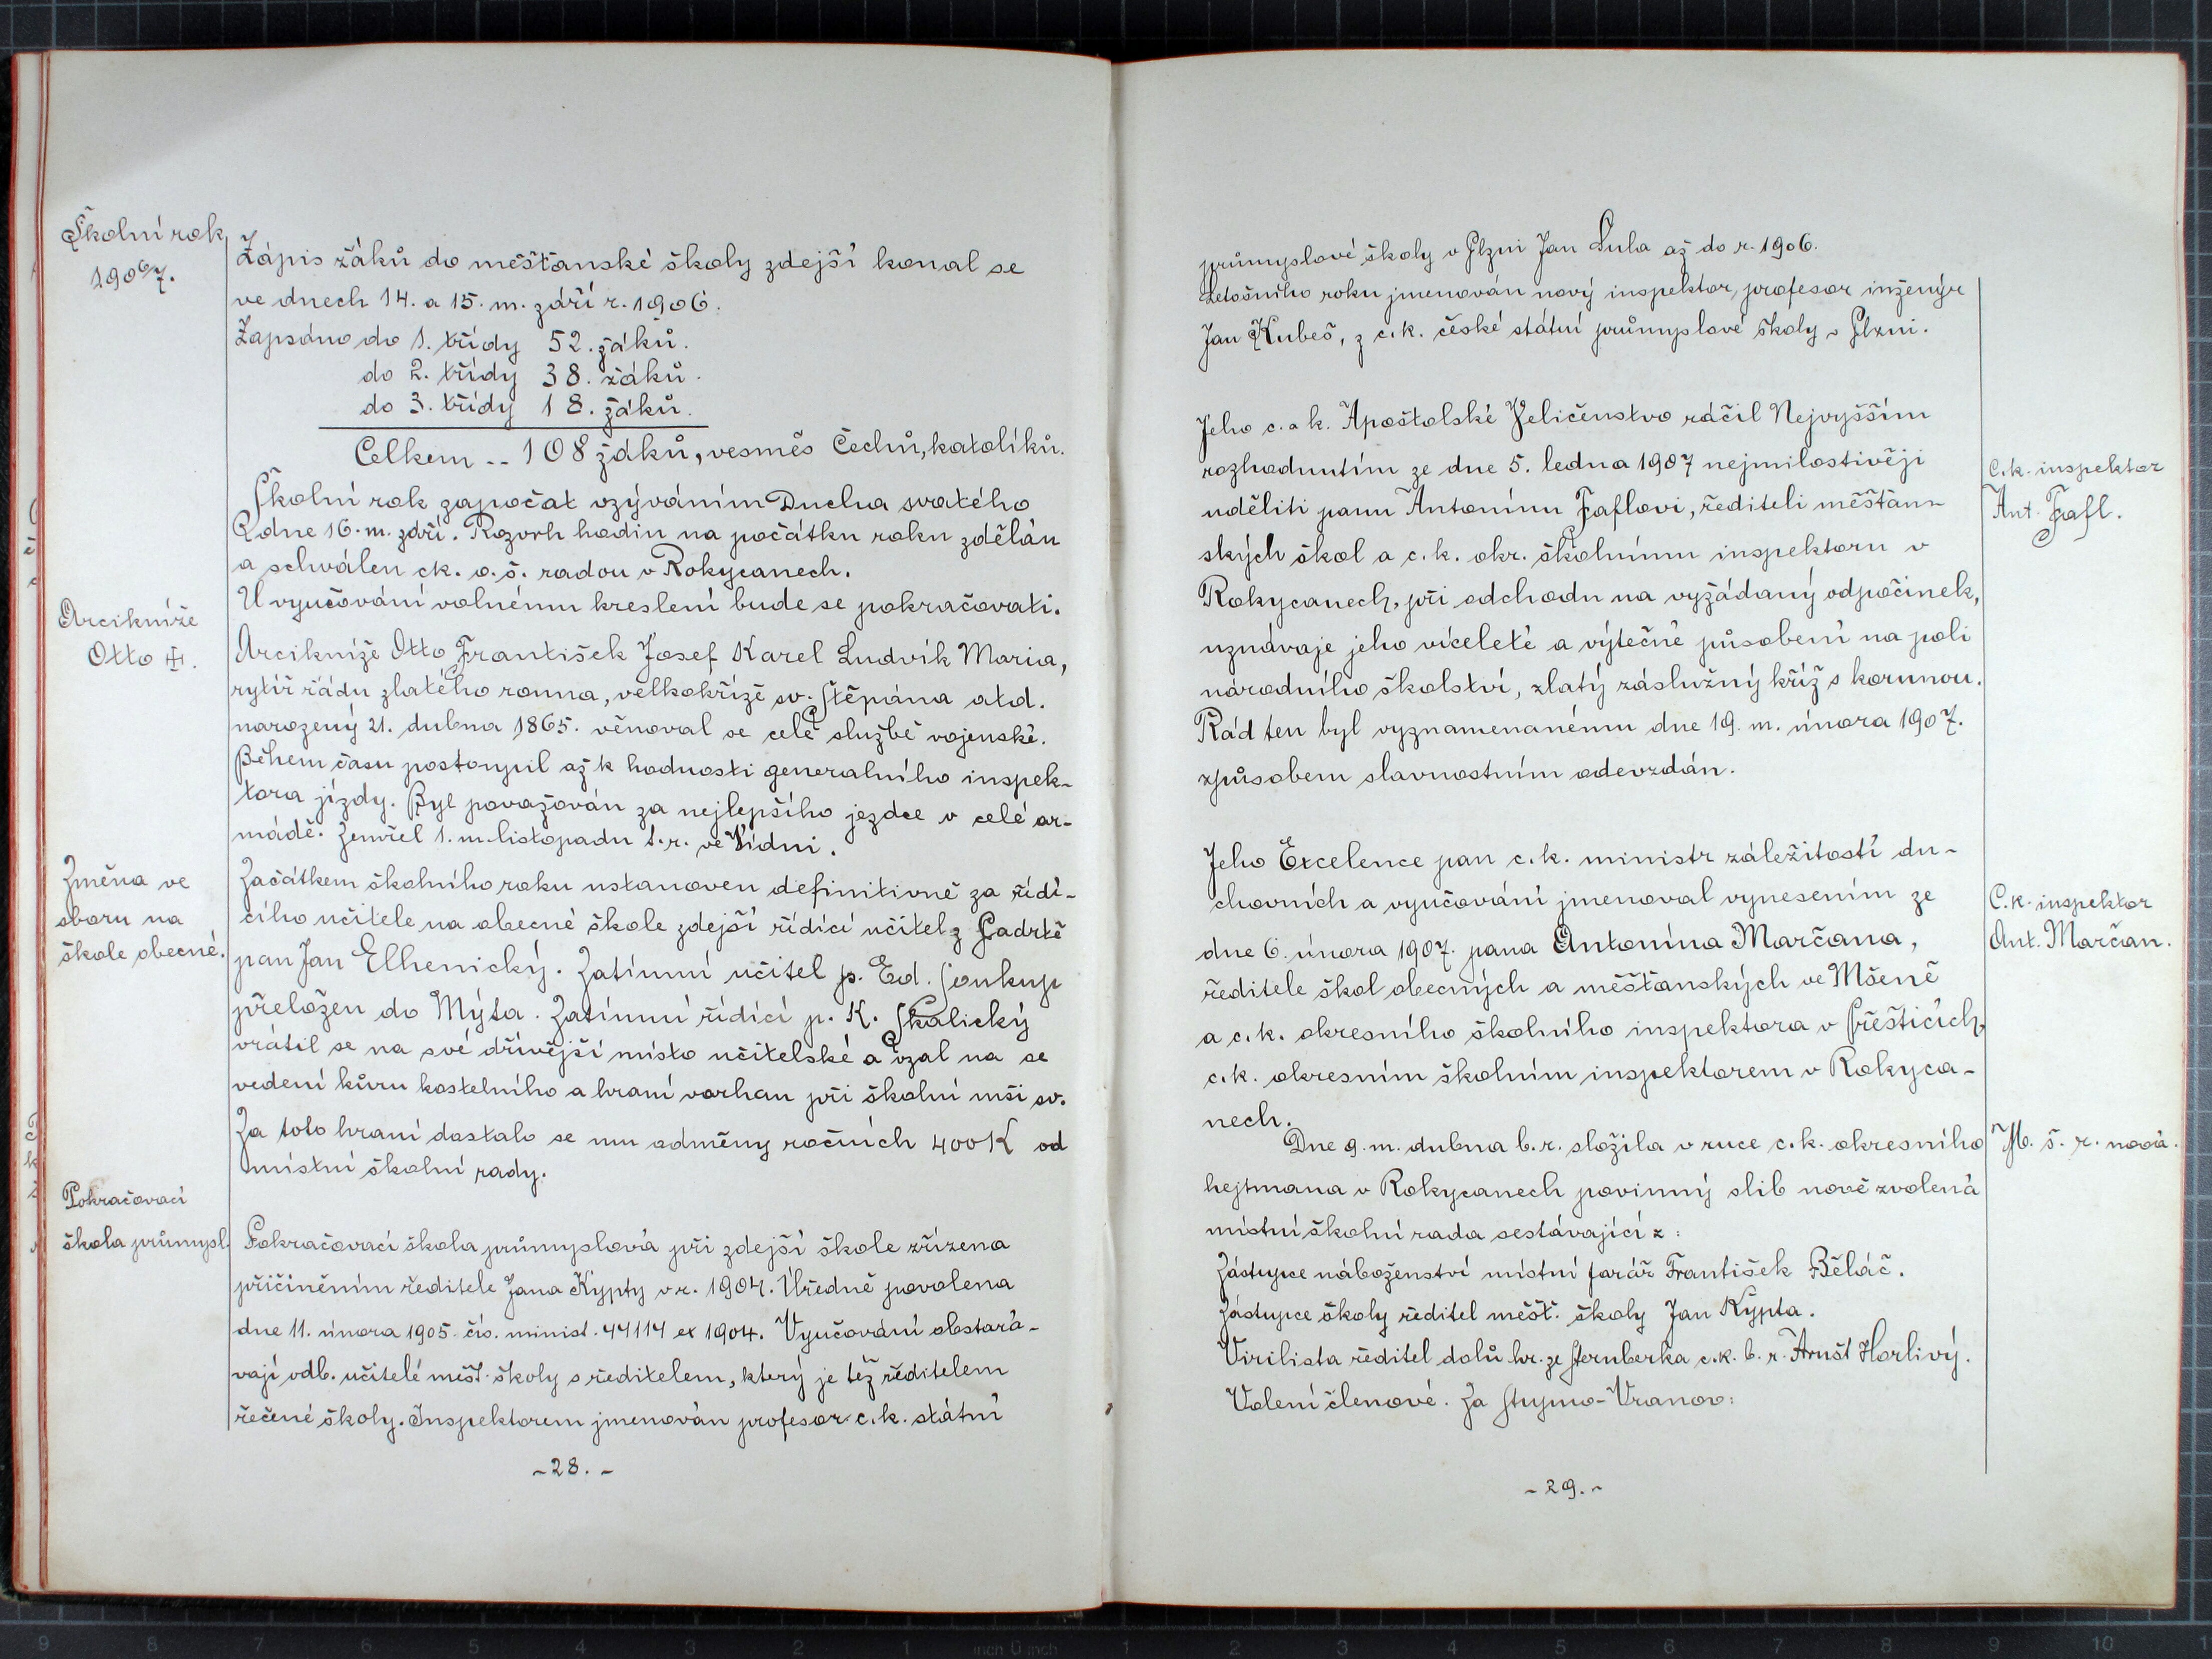 Školní rok
1906/7.
Zápis žáků do měšťanské školy zdejší konal se
ve dnech 14. a 15. m. září r. 1906.
Zapsáno do 1. třídy 52. žáků.
do 2. třídy 38. žáků.
do 3. třídy 18. žáků.
Celkem -- 108 žáků, vesměs Čechů, katolíků.
Školní rok započat vzýváním Ducha svatého
dne 16. m. září. Rozvrh hodin na počátku roku zdělán
a schválen ck. o. š. radou v Rokycanech.
U vyučování volnému kreslení bude se pokračovati.
Arcikníže
Otto ✠.
Arcikníže Otto František Josef Karel Ludvík Maria,
rytíř řádu zlatého rouna, velkokříže sv. Štěpána atd.
narozený 21. dubna 1865. věnoval se celé službě vojenské.
Během času postoupil až k hodnosti generalního inspek-
tora jízdy. Byl považován za nejlepšího jezdce v celé ar-
mádě. Zemřel 1. m. listopadu t. r. ve Vídni.
Změna ve
sboru na
škole obecné.
Začátkem školního roku ustanoven definitivně za řídí-
cího učitele na obecné škole zdejší řídící učitel z Padrtě
pan Jan Elhenický. Zatímní učitel p. Ed. Soukup
přeložen do Mýta. Zatímní řídící p. K. Skalický
vrátil se na své dřívější místo učitelské a vzal na se
vedení kůru kostelního a hraní varhan při školní mši sv.
Za toto hraní dostalo se mu odměny ročních 400 K od
místní školní rady.
Pokračovací
škola průmysl.
Pokračovací škola průmyslová při zdejší škole zřízena
přičiněním ředitele Jana Kypty v r. 1904. Úředně povolena
dne 11. února 1905. čís. minist. 44114 ex 1904. Vyučování obstará-
vají odb. učitelé měšť. školy s ředitelem, který je též ředitelem
řečené školy. Inspektorem jmenován profesor c. k. státní
-28.-
průmyslové školy v Plzni Jan Šula až do r. 1906.
Letošního roku jmenován nový inspektor, profesor inženýr
Jan Kubeš, z c. k. české státní průmyslové školy v Plzni.
Jeho c. a k. Apoštolské Veličenstvo ráčil Nejvyšším
rozhodnutím ze dne 5. ledna 1907 nejmilostivěji
uděliti panu Antonínu Faflovi, řediteli měšťan-
ských škol a c. k. okr. školnímu inspektoru v
Rokycanech, při odchodu na vyžádaný odpočinek,
uznávaje jeho víceleté a výtečné působení na poli
národního školství, zlatý záslužný kříž s korunou.
Řád ten byl vyznamenanému dne 19. m. února 1907.
způsobem slavnostním odevzdán.
C. k. inspektor
Ant. Fafl.
Jeho Excelence pan c. k. ministr záležitostí du-
chovních a vyučování jmenoval vynesením ze
dne 6. února 1907. pana Antonína Marčana,
ředitele škol obecných a měšťanských ve Mšeně
a c. k. okresního školního inspektora v Přešticích,
c. k. okresním školním inspektorem v Rokyca-
nech.
C. k. inspektor
Ant. Marčan.
Dne 9. m. dubna b. r. složila v ruce c. k. okresního
hejtmana v Rokycanech povinný slib nově zvolená
místní školní rada sestávající z:
M. š. r. nová.
Zástupce náboženství místní farář František Běláč.
Zástupce školy ředitel měšť. školy Jan Kypta.
Virilista ředitel dolů hr. ze Sternberka c. k. b. r. Arnšt Horlivý.
Volení členové. Za Stupno-Vranov:
-29.-